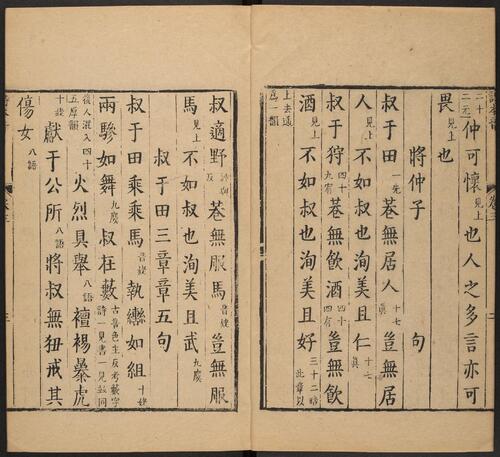 二十二元仲可懷見上也人之多言亦可
畏見上也
將仲子 句
叔于田一先巷無居人十七眞豈無居
人見上不如叔也洵美且仁十七眞
叔于狩四十九宥巷無飲酒四十四有豈無飲
酒見上不如叔也洵美且好三十二晧此章以
上去通爲一韻
叔適野神與反巷無服馬音姥豈無服
馬見上不如叔也洵美且武九麌
叔于田三章章五句
叔于田乘乘馬音姥執轡如組十姥
兩驂如舞九麌叔在藪古音色主反考藪字詩一見書一見並同
後人混入四十五厚韻火烈具舉八語襢裼暴虎
十姥獻于公所八語將叔無狃戒其
傷女八語